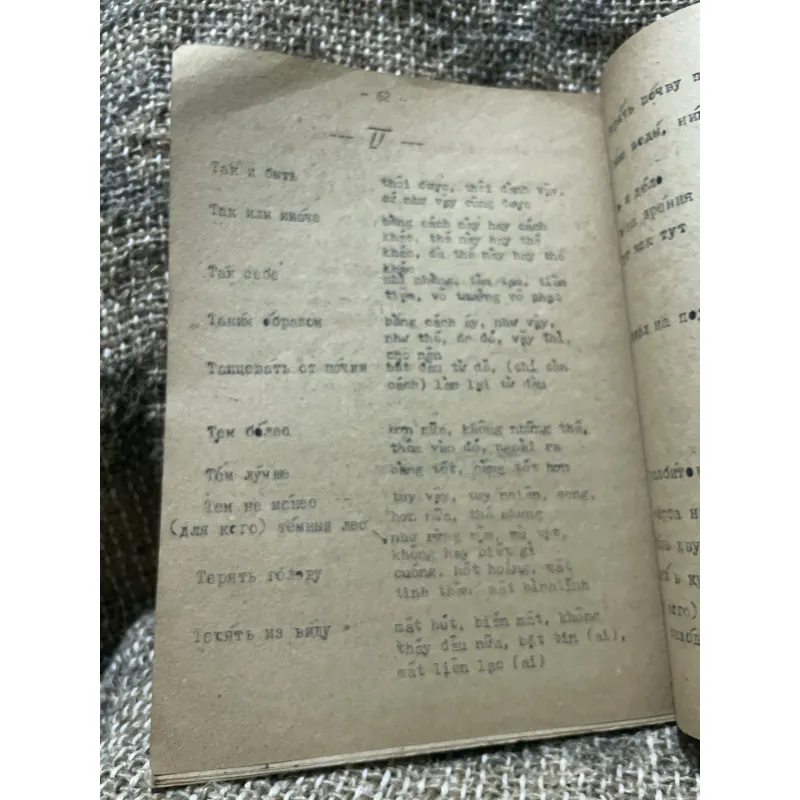 - 62 -
-- T --
Так и быть
thôi được, thôi đành vậy,
cứ như vậy cũng được
Так или ина́че
bằng cách này hay cách
khác, thế này hay thế
khác, dù thế này hay thế
khác
Так себе
tiềm
tiệm, vô thưởng vô phạt
Таким о́бразом
bằng cách ấy, như vậy,
như thế, do đó, vậy thì,
cho nên
Танцевать от печки
bắt đầu từ đó, (chỉ cần
cách) làm lại từ đầu
Тем бо́лее
hơn nữa, không những thế,
thêm vào đó, ngoài ra
Тем лу́чше
càng tốt, càng tốt hơn
Тем не менее
tuy vậy, tuy nhiên, song,
hơn nữa, thế nhưng
(для кого) тёмный лес
như rừng rậm, mù tịt,
không hay biết gì
Терять го́лову
cuống, hốt hoảng, mất
tinh thần, mất bình tĩnh
Терять из ви́ду
mất hút, biến mất, không
thấy đâu nữa, bặt tin (ai),
mất liên lạc (ai)
почву п
ведь, ни
и де́ло
зрения
как тут
на по
кого)